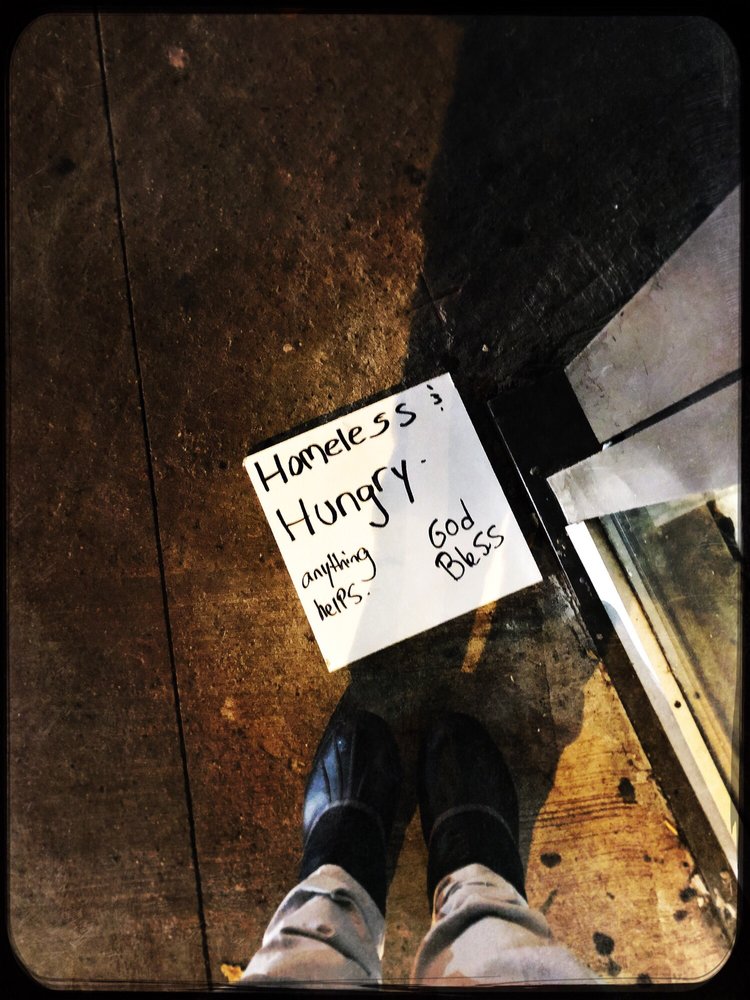 Homeless &
Hungry.
anything
helps.
God
Bless